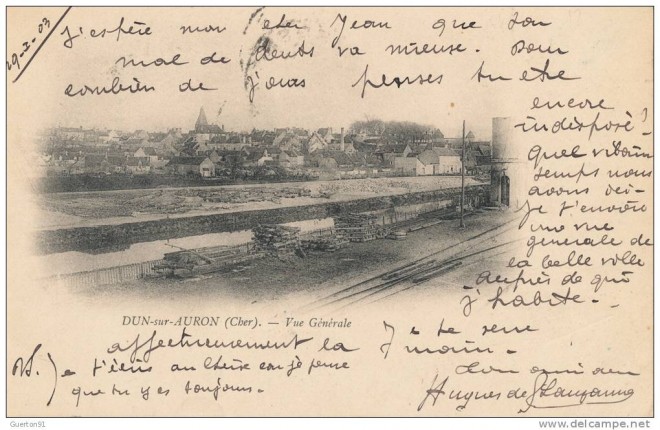 19-I-03
J'espère mon cher Jean que ton
mal de dents va mieux. Pour
combien de jours penses tu être
encore
indisposé?
Quel vilain
temps nous
avons ici-
Je t'envoie
une vue
générale de
la belle ville
auprès de qui
j'habite.
DUN-sur-AURON (Cher). — Vue Générale
Je te serre
affectueusement la main.
Ton ami
Hugues de
Je t'écris au
que tu y es toujours.
© Guerton91
www.delcampe.net